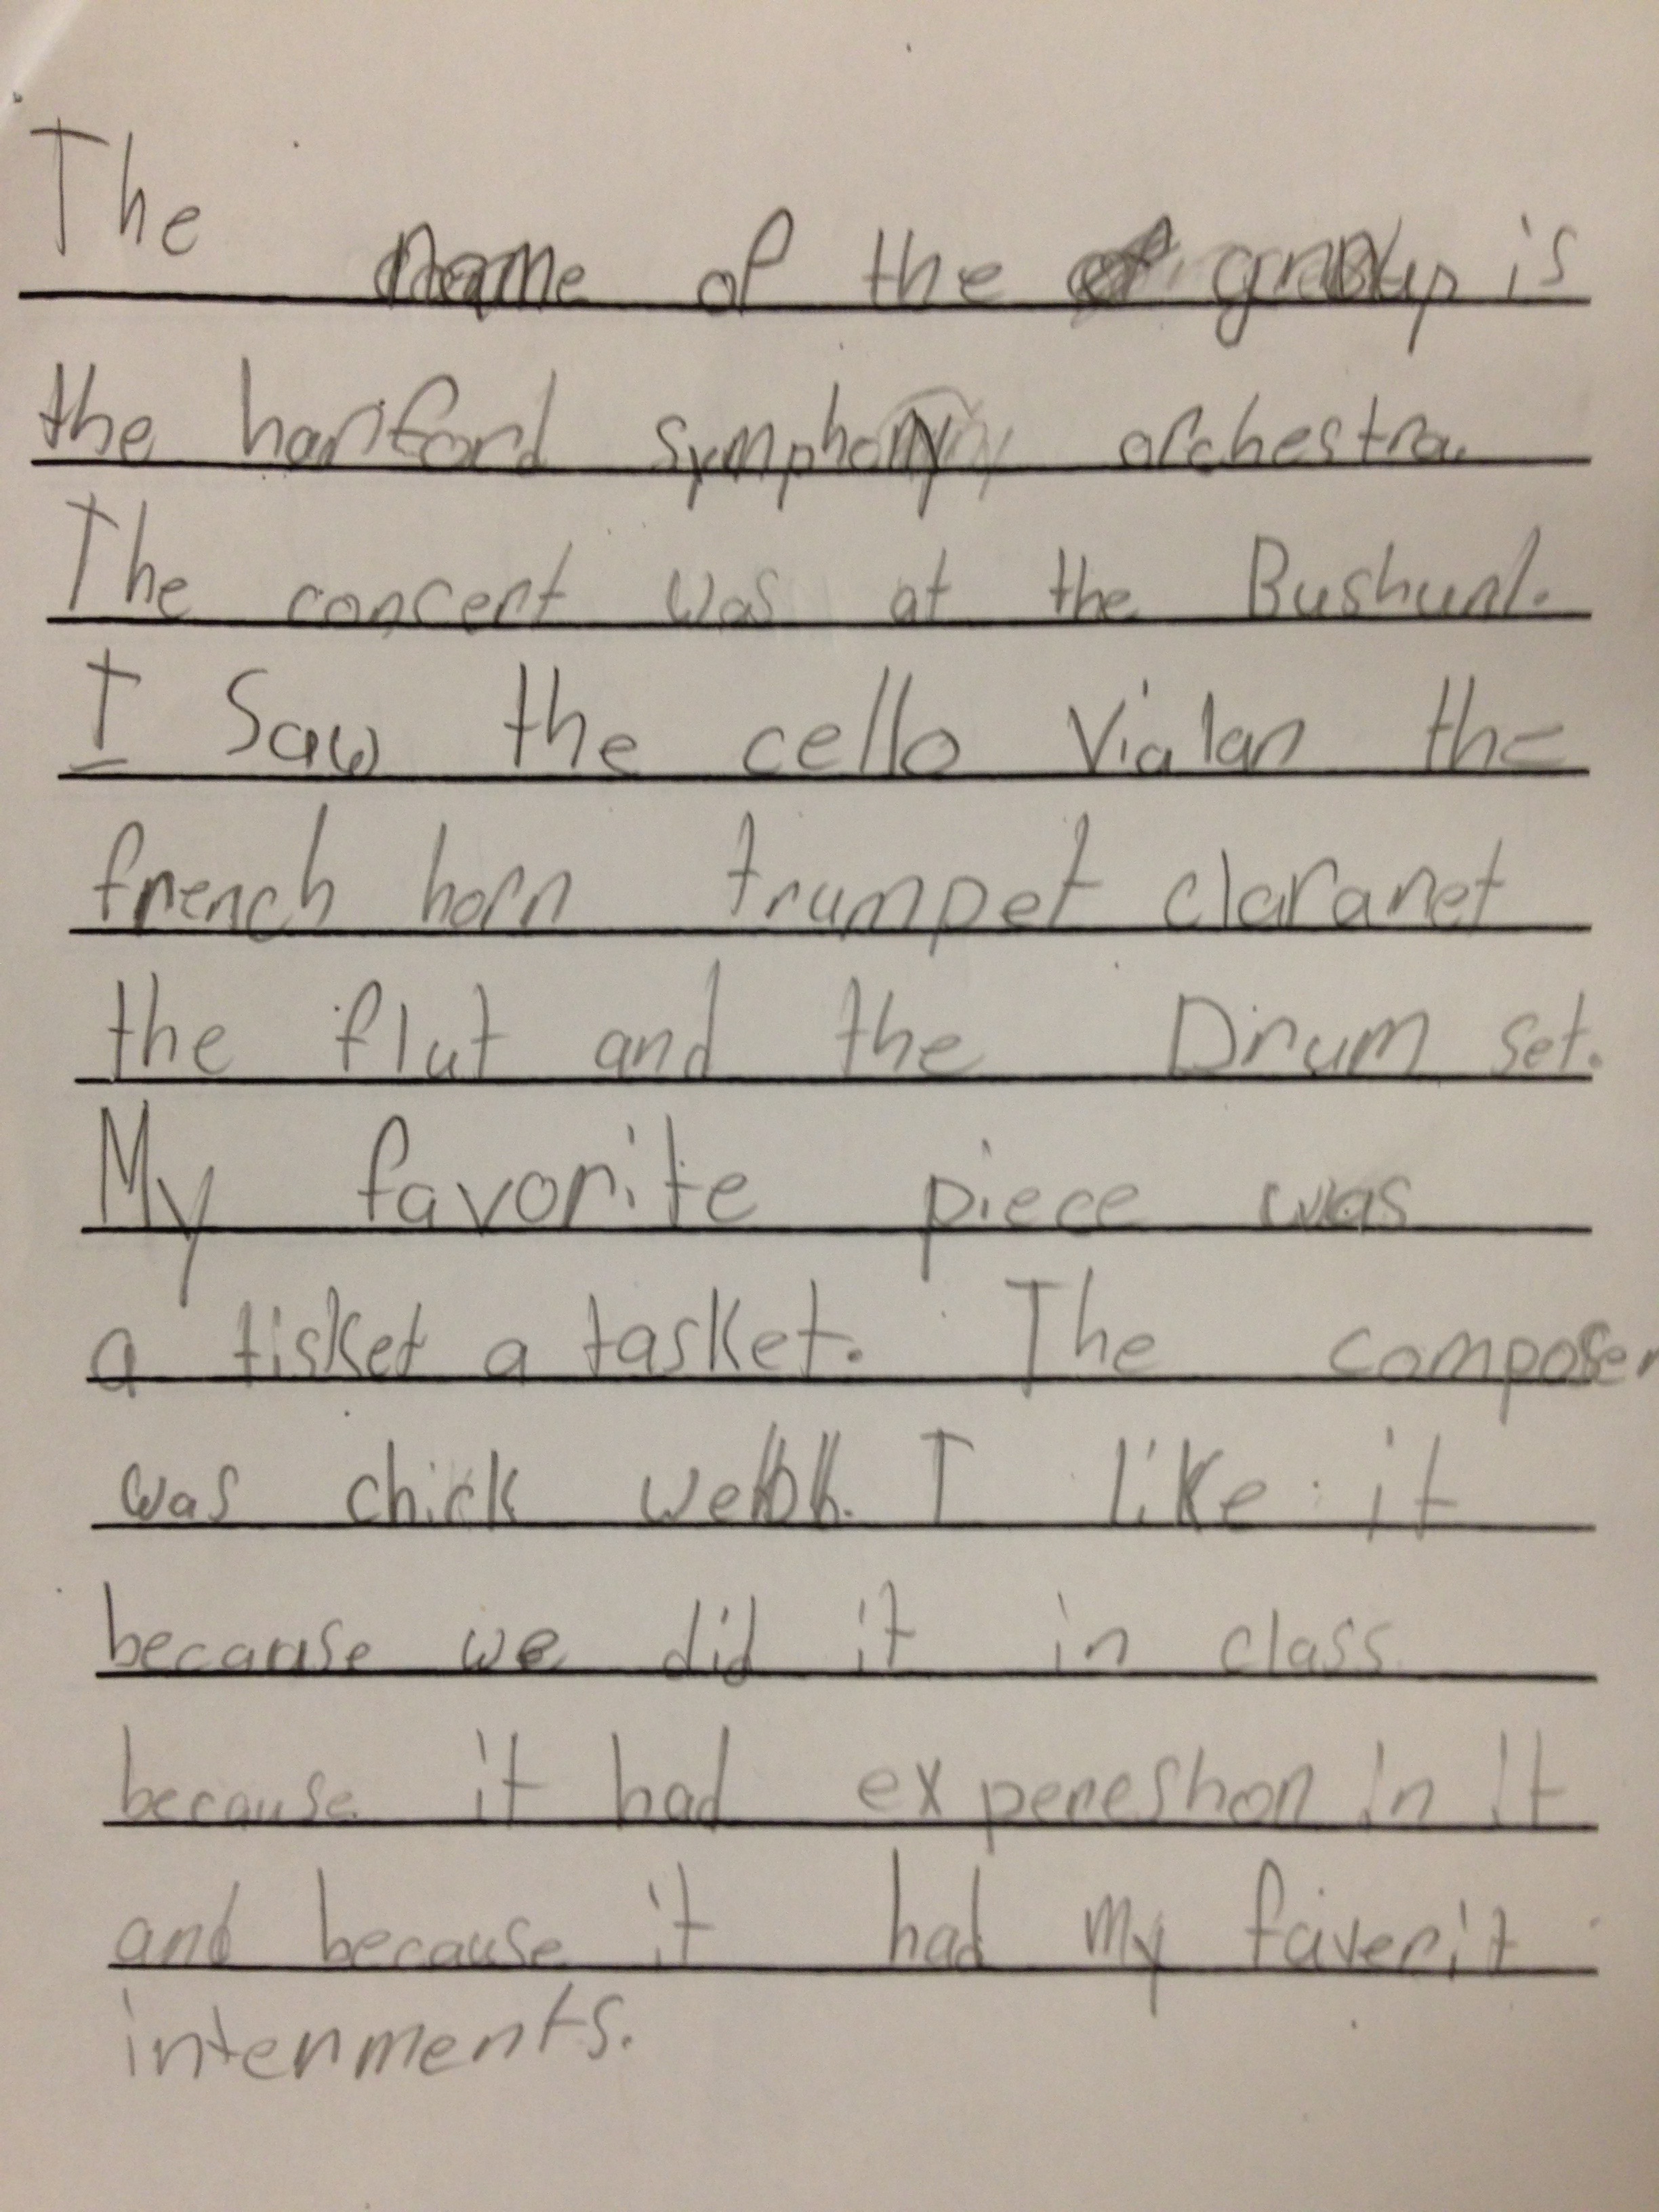 The name of the group is
the harford symphony orchestra.
The concert was at the Bushunl.
I Saw the cello Vialan the
french horn trumpet claranet
the flut and the Drum set.
My favorite piece was
a tisket a tasket. The composer
was chick webb. I like it
because we did it in class
because it had expereshon in it
and because it had my faverit
interments.